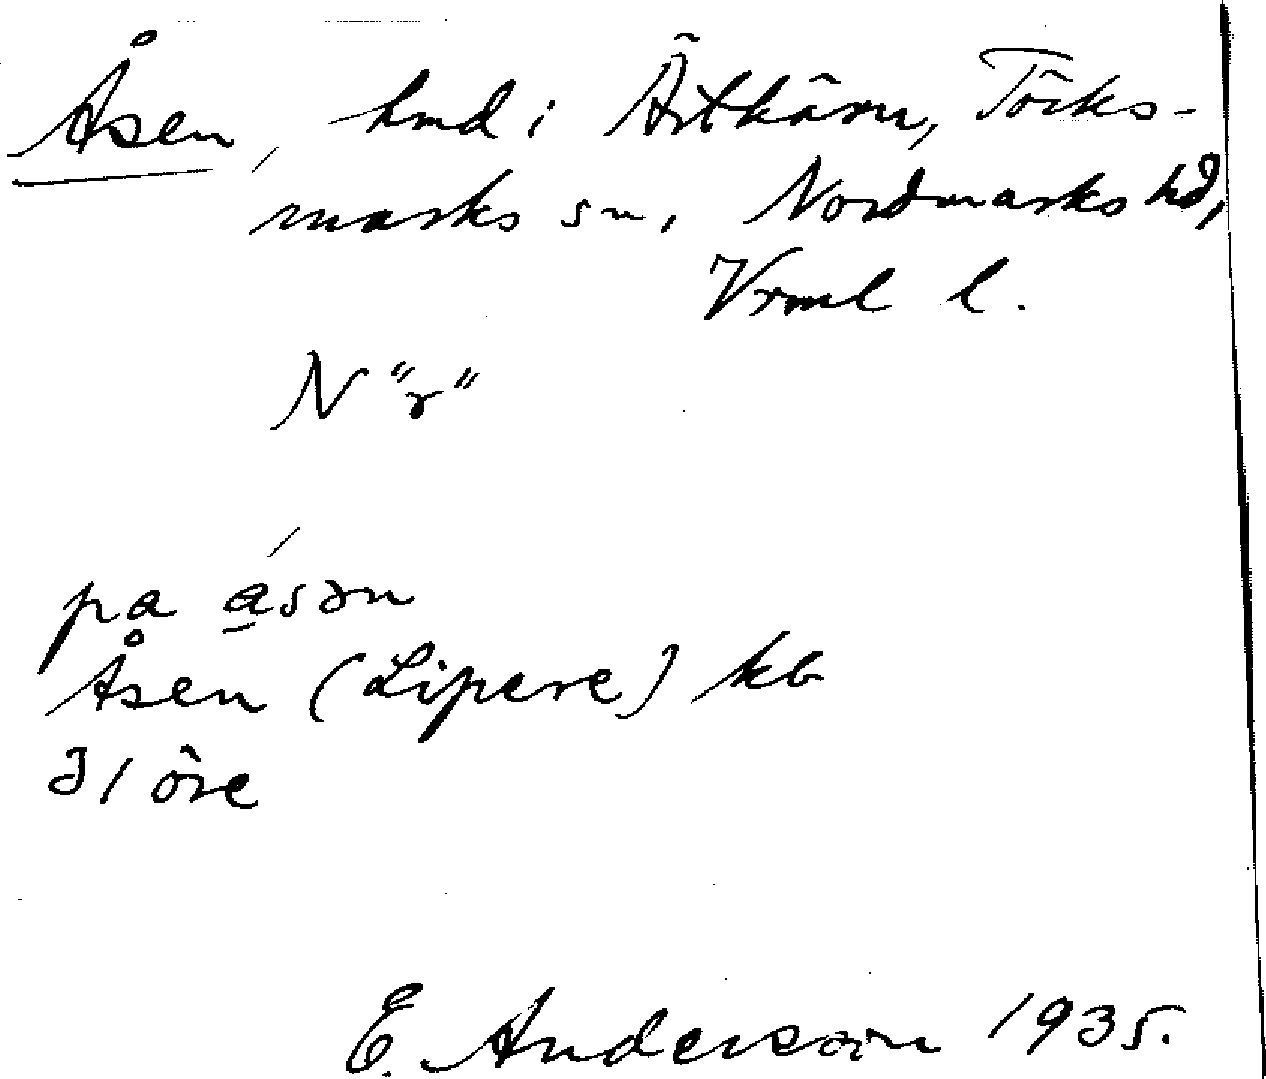 Åsen, hmd i Ärtkärn, Töcks-
marks sn, Nordmarks hd,
Vrml l.
N "r"
pa asən
Åsen (Lipere) kb
öre
E. Anderson 1935.